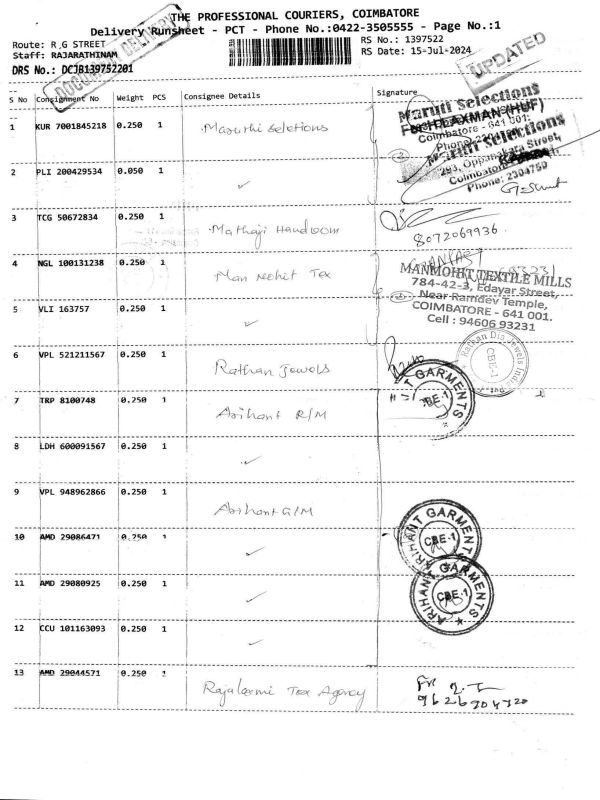 THE PROFESSIONAL COURIERS, COIMBATORE
Delivery Runsheet - PCT - Phone No.:0422-3505555 - Page No.:1
Route: R,G STREET
Staff: RAJARATHINAM
DRS No.: DCJB139752201
RS No.: 1397522
RS Date: 15-Jul-2024
DOCUMENT DELIVERY
UPDATED
S No Consignment No Weight PCS Consignee Details Signature
1 KUR 7001845218 0.250 1 Maruthi Seletions
Maruti Selections
Coimbatore - 641 001.
For H.LAXMAN(HUF)
Maruti Selections
293, Oppanakara Street,
Coimbatore
Phone: 2304759
2 PLI 200429534 0.050 1 ✓
3 TCG 50672834 0.250 1 Mathaji Handloom
8072069936
4 NGL 100131238 0.250 1 Man Mohit Tex
MANMOHIT TEXTILE MILLS
784-42-3, Edayar Street,
Near Ramdev Temple,
COIMBATORE - 641 001.
Cell : 94606 93231
5 VLI 163757 0.250 1 ✓
6 VPL 521211567 0.250 1 Rathan Jewels
CBE-1
7 TRP 8100748 0.250 1 Arihant R/M
GARMENTS
CBE-1
8 LDH 600091567 0.250 1 ✓
9 VPL 948962866 0.250 1 Arihant G/M
ARIHANT GARMENTS
CBE-1
10 AMD 29086471 0.250 1 ✓
11 AMD 29080925 0.250 1 ✓
ARIHANT GARMENTS
CBE-1
12 CCU 101163093 0.250 1 ✓
13 AMD 29044571 0.250 1 Rajalaxmi Tex Agency
9626704320